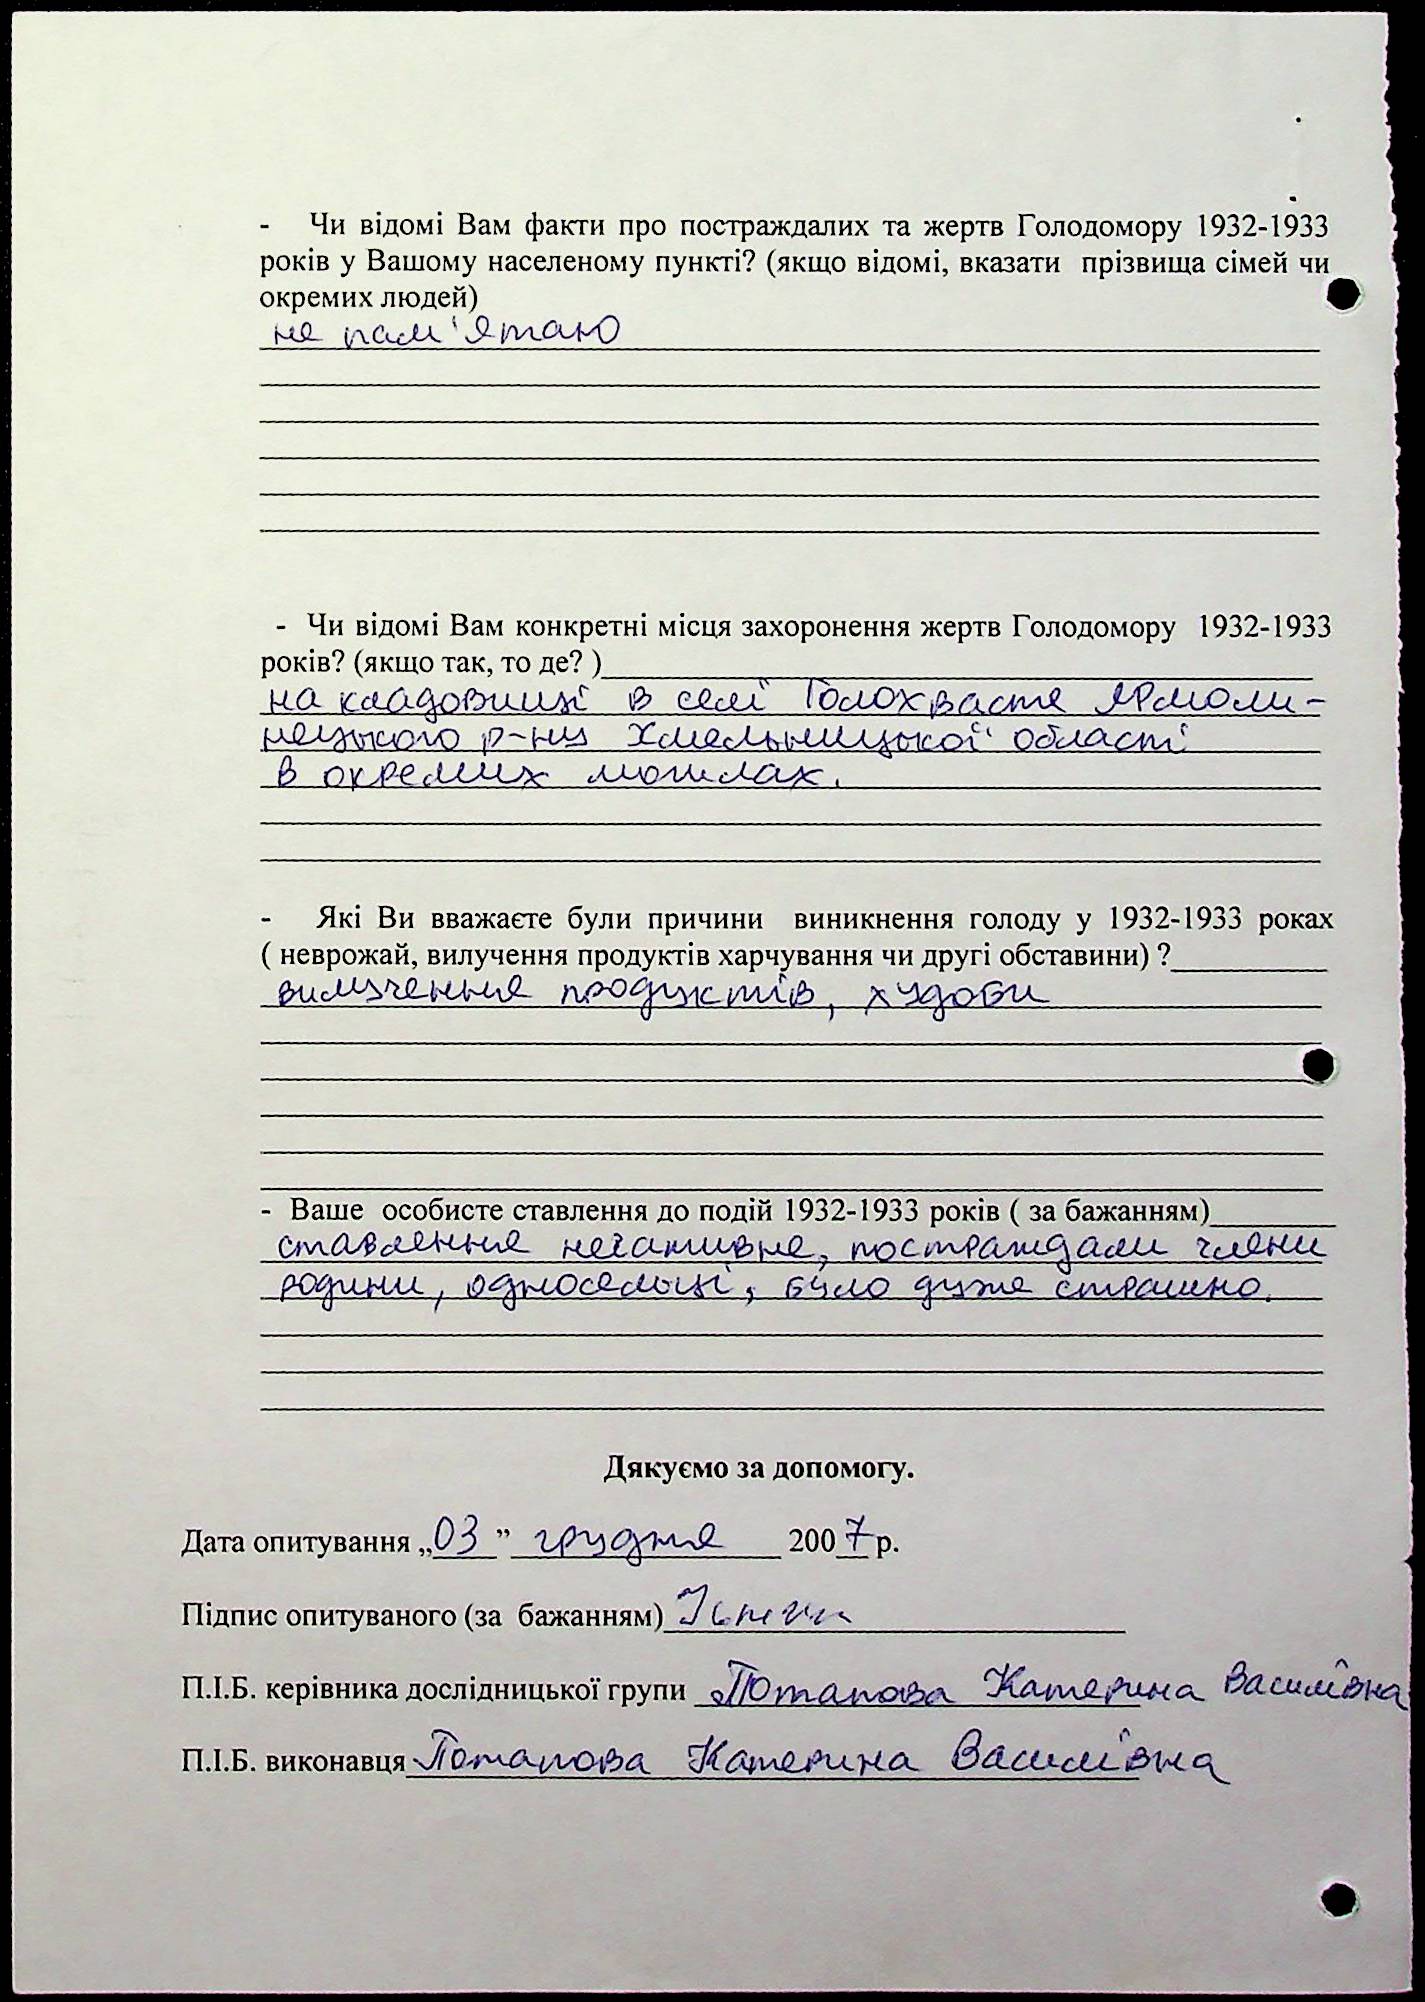 - Чи відомі Вам факти про постраждалих та жертв Голодомору 1932-1933
років у Вашому населеному пункті? (якщо відомі, вказати прізвища сімей чи
окремих людей)
не пам'ятаю
- Чи відомі Вам конкретні місця захоронення жертв Голодомору 1932-1933
років? (якщо так, то де? )
на кладовищі в селі Голохвастя Ярмоли-
нецького р-ну Хмельницької області
в окремих могилах.
- Які Ви вважаєте були причини виникнення голоду у 1932-1933 роках
( неврожай, вилучення продуктів харчування чи другі обставини) ?
вилучення продуктів, худоби
- Ваше особисте ставлення до подій 1932-1933 років ( за бажанням)
ставлення негативне, постраждали члени
родини, односельці, було дуже страшно.
Дякуємо за допомогу.
Дата опитування „03” грудня 2007 р.
Підпис опитуваного (за бажанням)
П.І.Б. керівника дослідницької групи Потапова Катерина Василівна
П.І.Б. виконавця Потапова Катерина Василівна